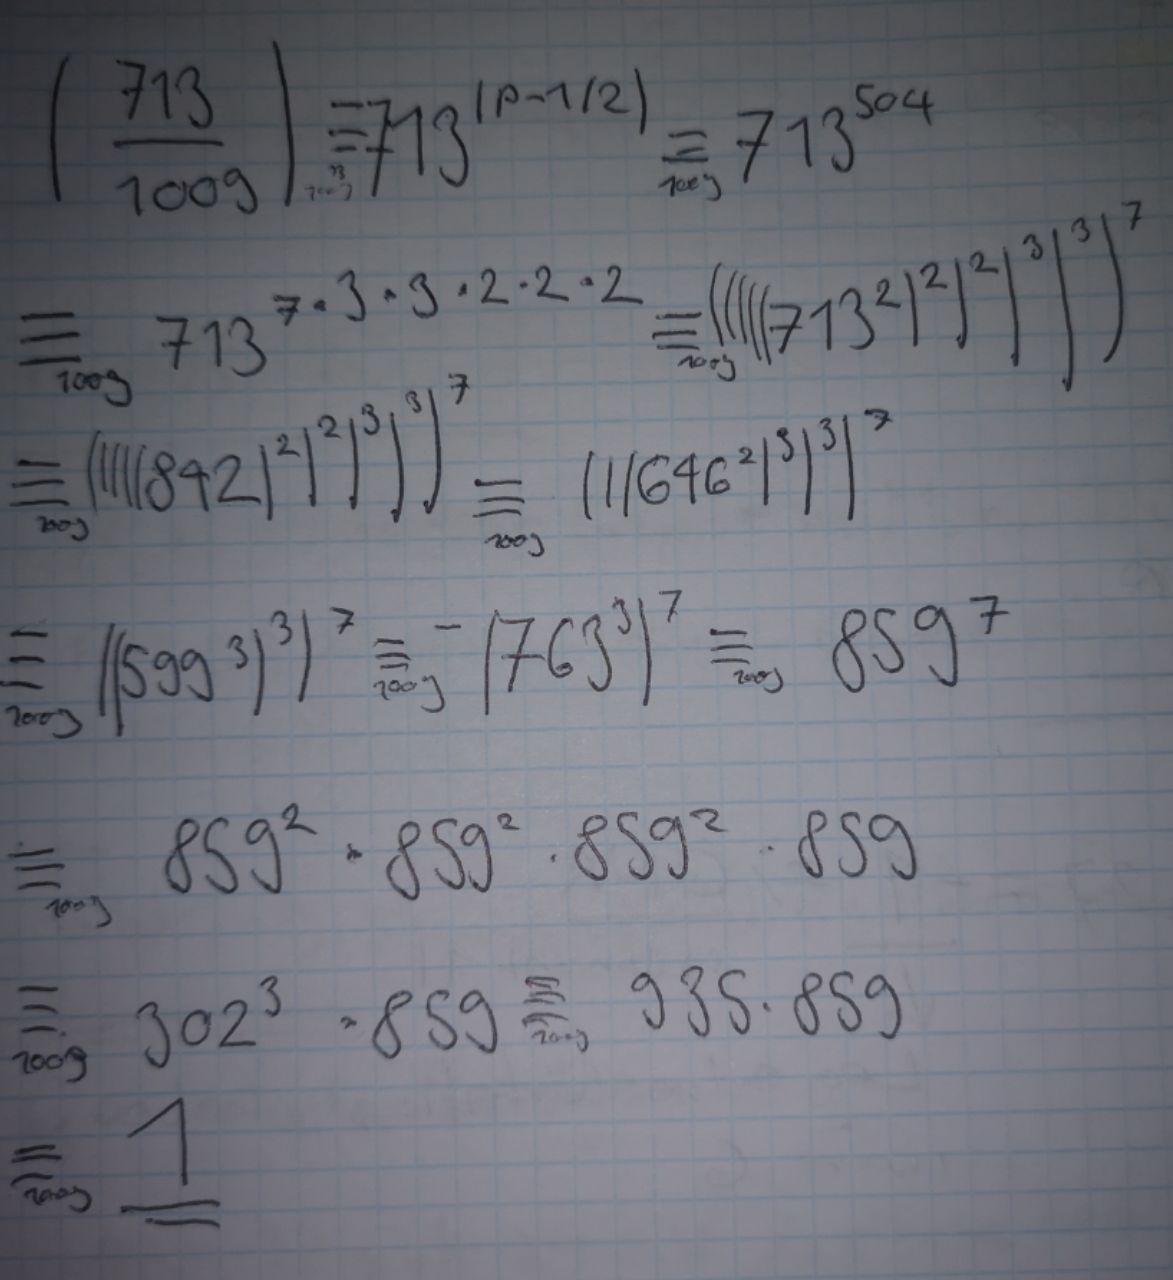 (713/1009) ≡₁₀₀₉ 713^(p-1/2) ≡₁₀₀₉ 713^504
≡₁₀₀₉ 713^7·3·3·2·2·2 ≡₁₀₀₉ (((((713^2)^2)^2)^3)^3)^7
≡₁₀₀₉ (((((842)^2)^2)^3)^3)^7 ≡₁₀₀₉ (((646^2)^3)^3)^7
≡₁₀₀₉ ((599^3)^3)^7 ≡₁₀₀₉ -(763^3)^7 ≡₁₀₀₉ 859^7
≡₁₀₀₉ 859^2 · 859^2 · 859^2 · 859
≡₁₀₀₉ 302^3 · 859 ≡₁₀₀₉ 935 · 859
≡₁₀₀₉ 1